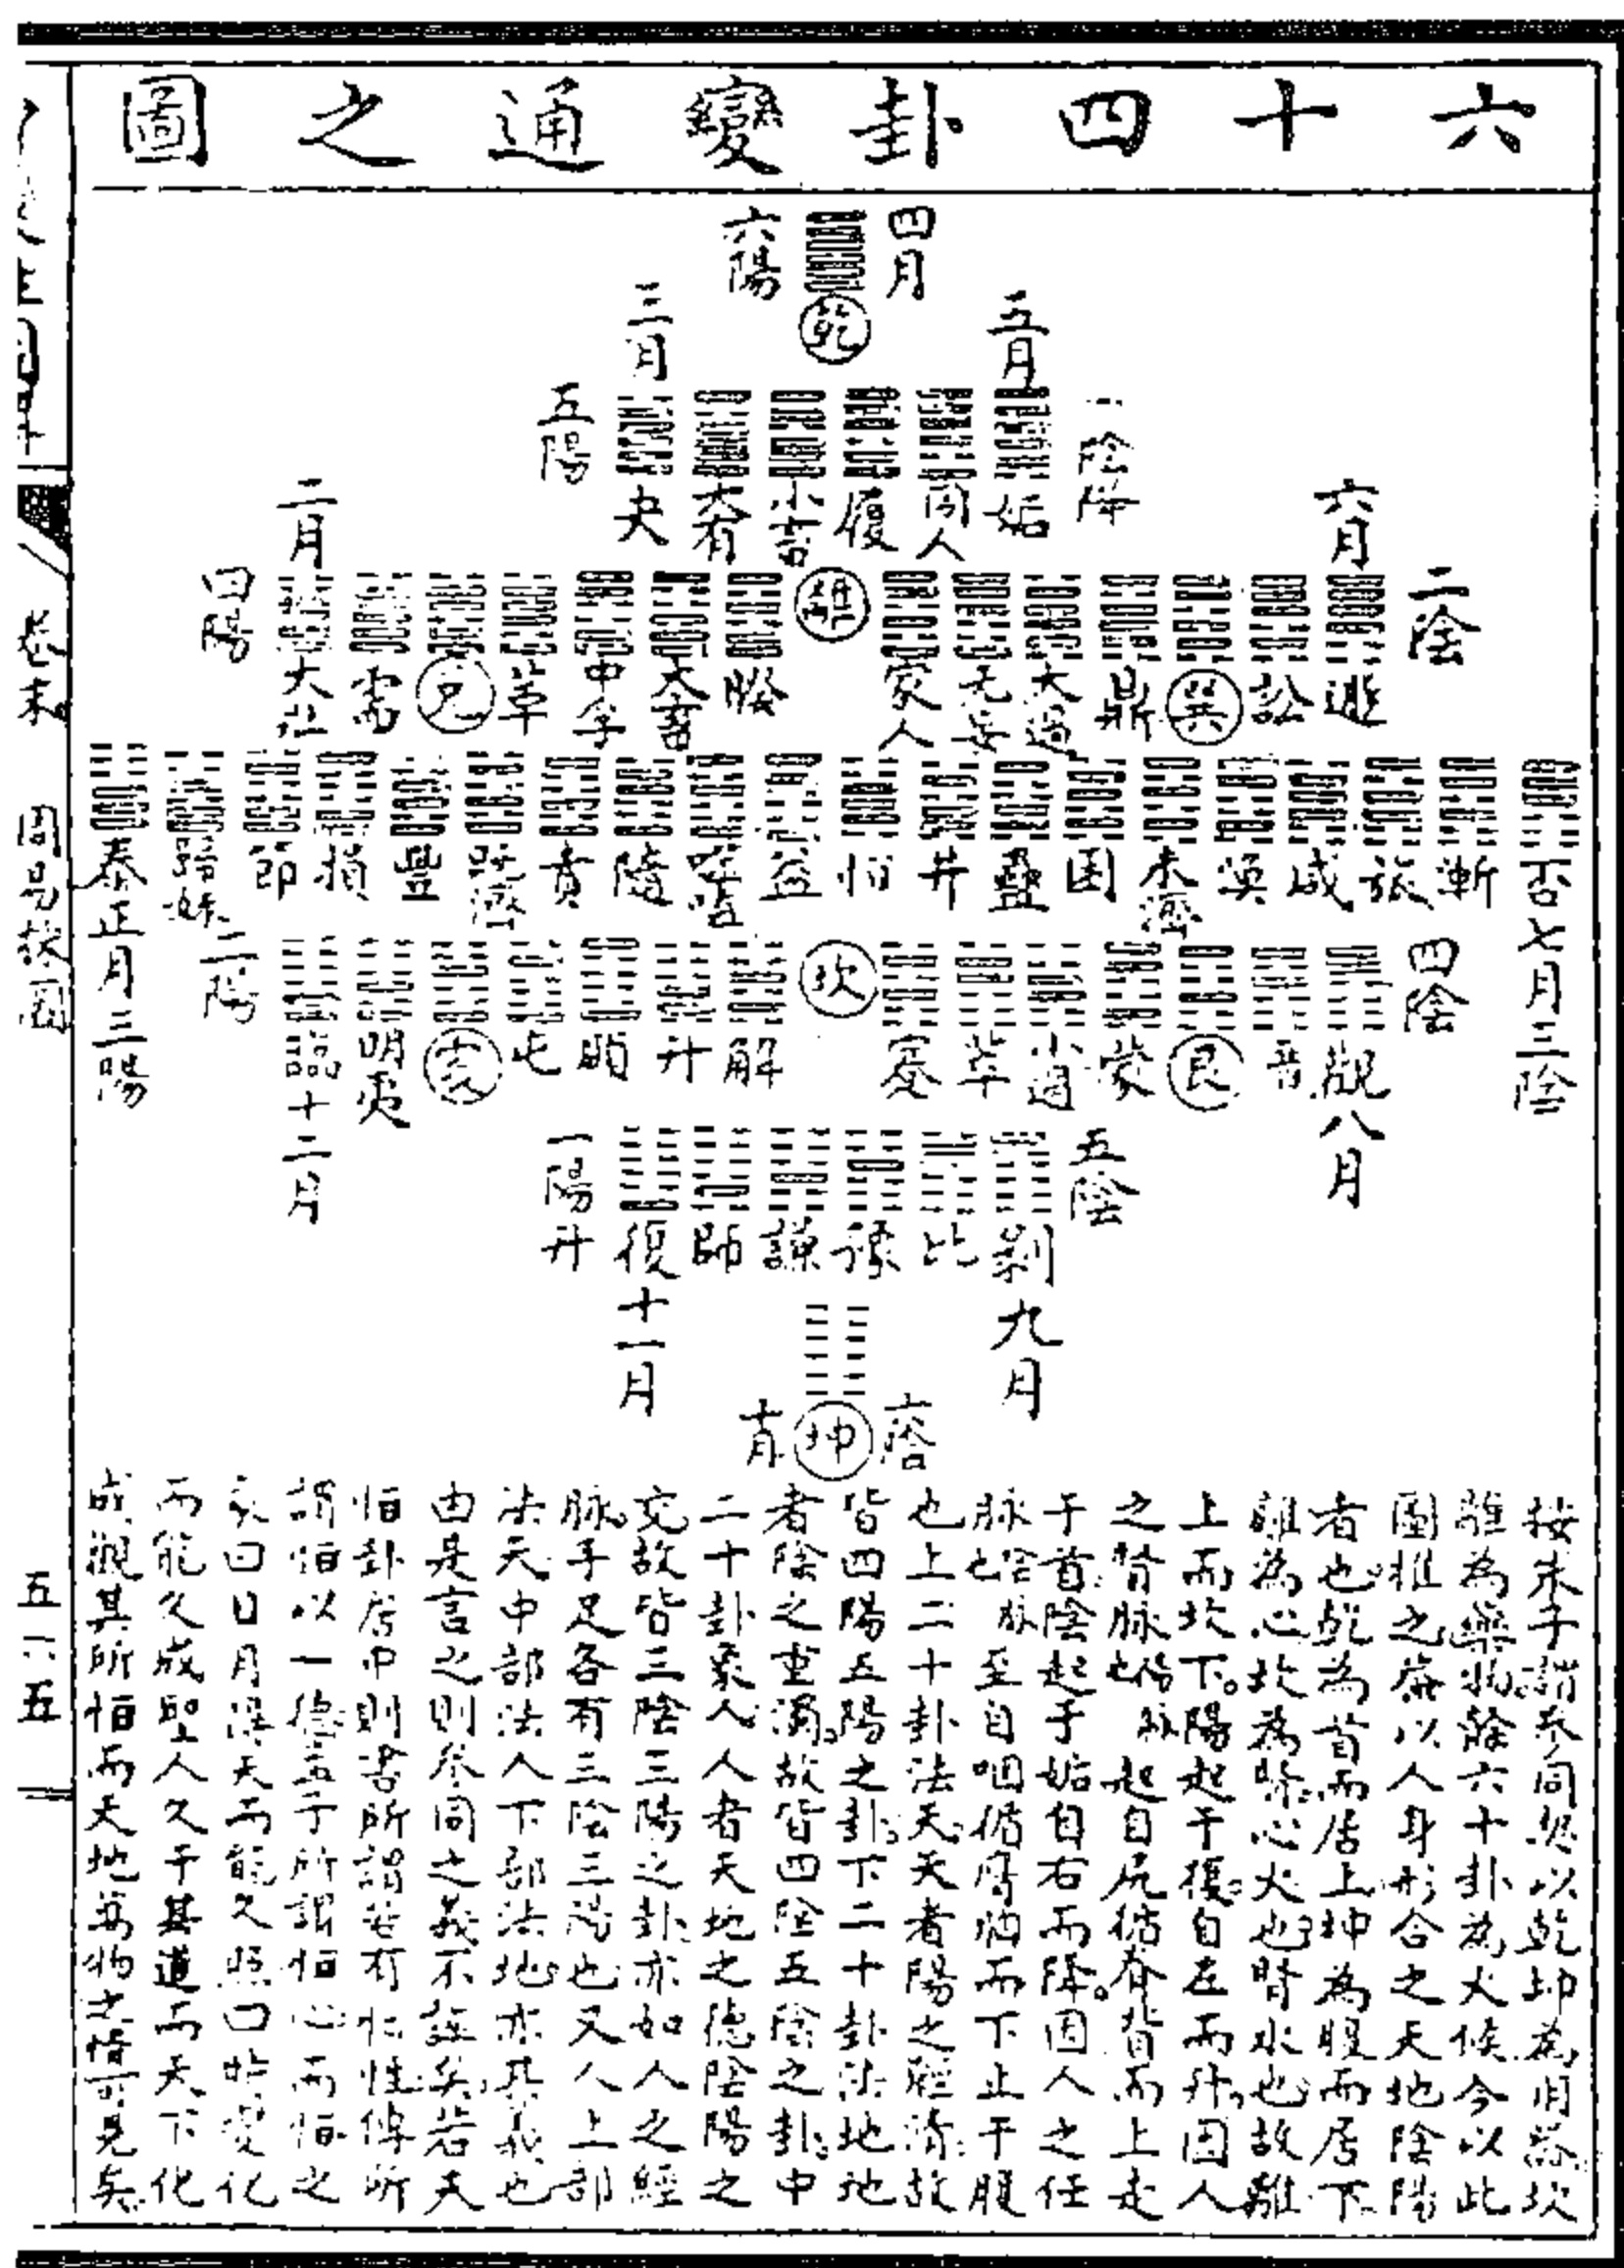 六十四卦變通之圖
四月
乾
六陽
五月
三月
一陰降
姤
同人
履
小畜
大有
夬
五陽
六月
二月
二陰
遯
訟
巽
鼎
大過
无妄
家人
離
睽
大畜
中孚
革
兌
需
大壯
四陽
否七月三陰
漸
旅
咸
渙
未濟
困
蠱
井
恒
益
噬嗑
隨
賁
既濟
豐
損
節
歸妹
泰正月三陽
四陰
觀八月
晉
艮
蒙
小過
萃
蹇
坎
解
升
頤
屯
震
明夷
臨十二月
二陽
五陰
剝九月
比
豫
謙
師
復十一月
一陽升
六陰
坤
十月
按朱子謂參同契以乾坤為用器坎
離為藥物餘六十卦為火候今以此
圖推之葢以人身形合之天地陰陽
者也乾為首而居上坤為腹而居下
離為心坎為腎心火也腎水也故離
上而坎下陽起于復自左而升因人
之督脉也陽脉起自尻循脊背而上走
于首陰起于姤自右而降因人之任
脉也陰脉至自咽循膺胸而下止于腹
也上二十卦法天天者陽之輕清故
皆四陽五陽之卦下二十卦法地地
者陰之重濁故皆四陰五陰之卦中
二十卦象人人者天地之德陰陽之
交故皆三陰三陽之卦亦如人之經
脉手足各有三陰三陽也又人上部
法天中部法人下部法地亦其義也
由是言之則參同之義不誣矣若夫
恒卦居中則書所謂若有恒性傳所
謂恒以一德孟子所謂恒心而恒之
彖曰日月得天而能久照四時變化
而能久成聖人久于其道而天下化
成觀其所恒而天地萬物之情可見矣
卷末
周易啟圖
五六五